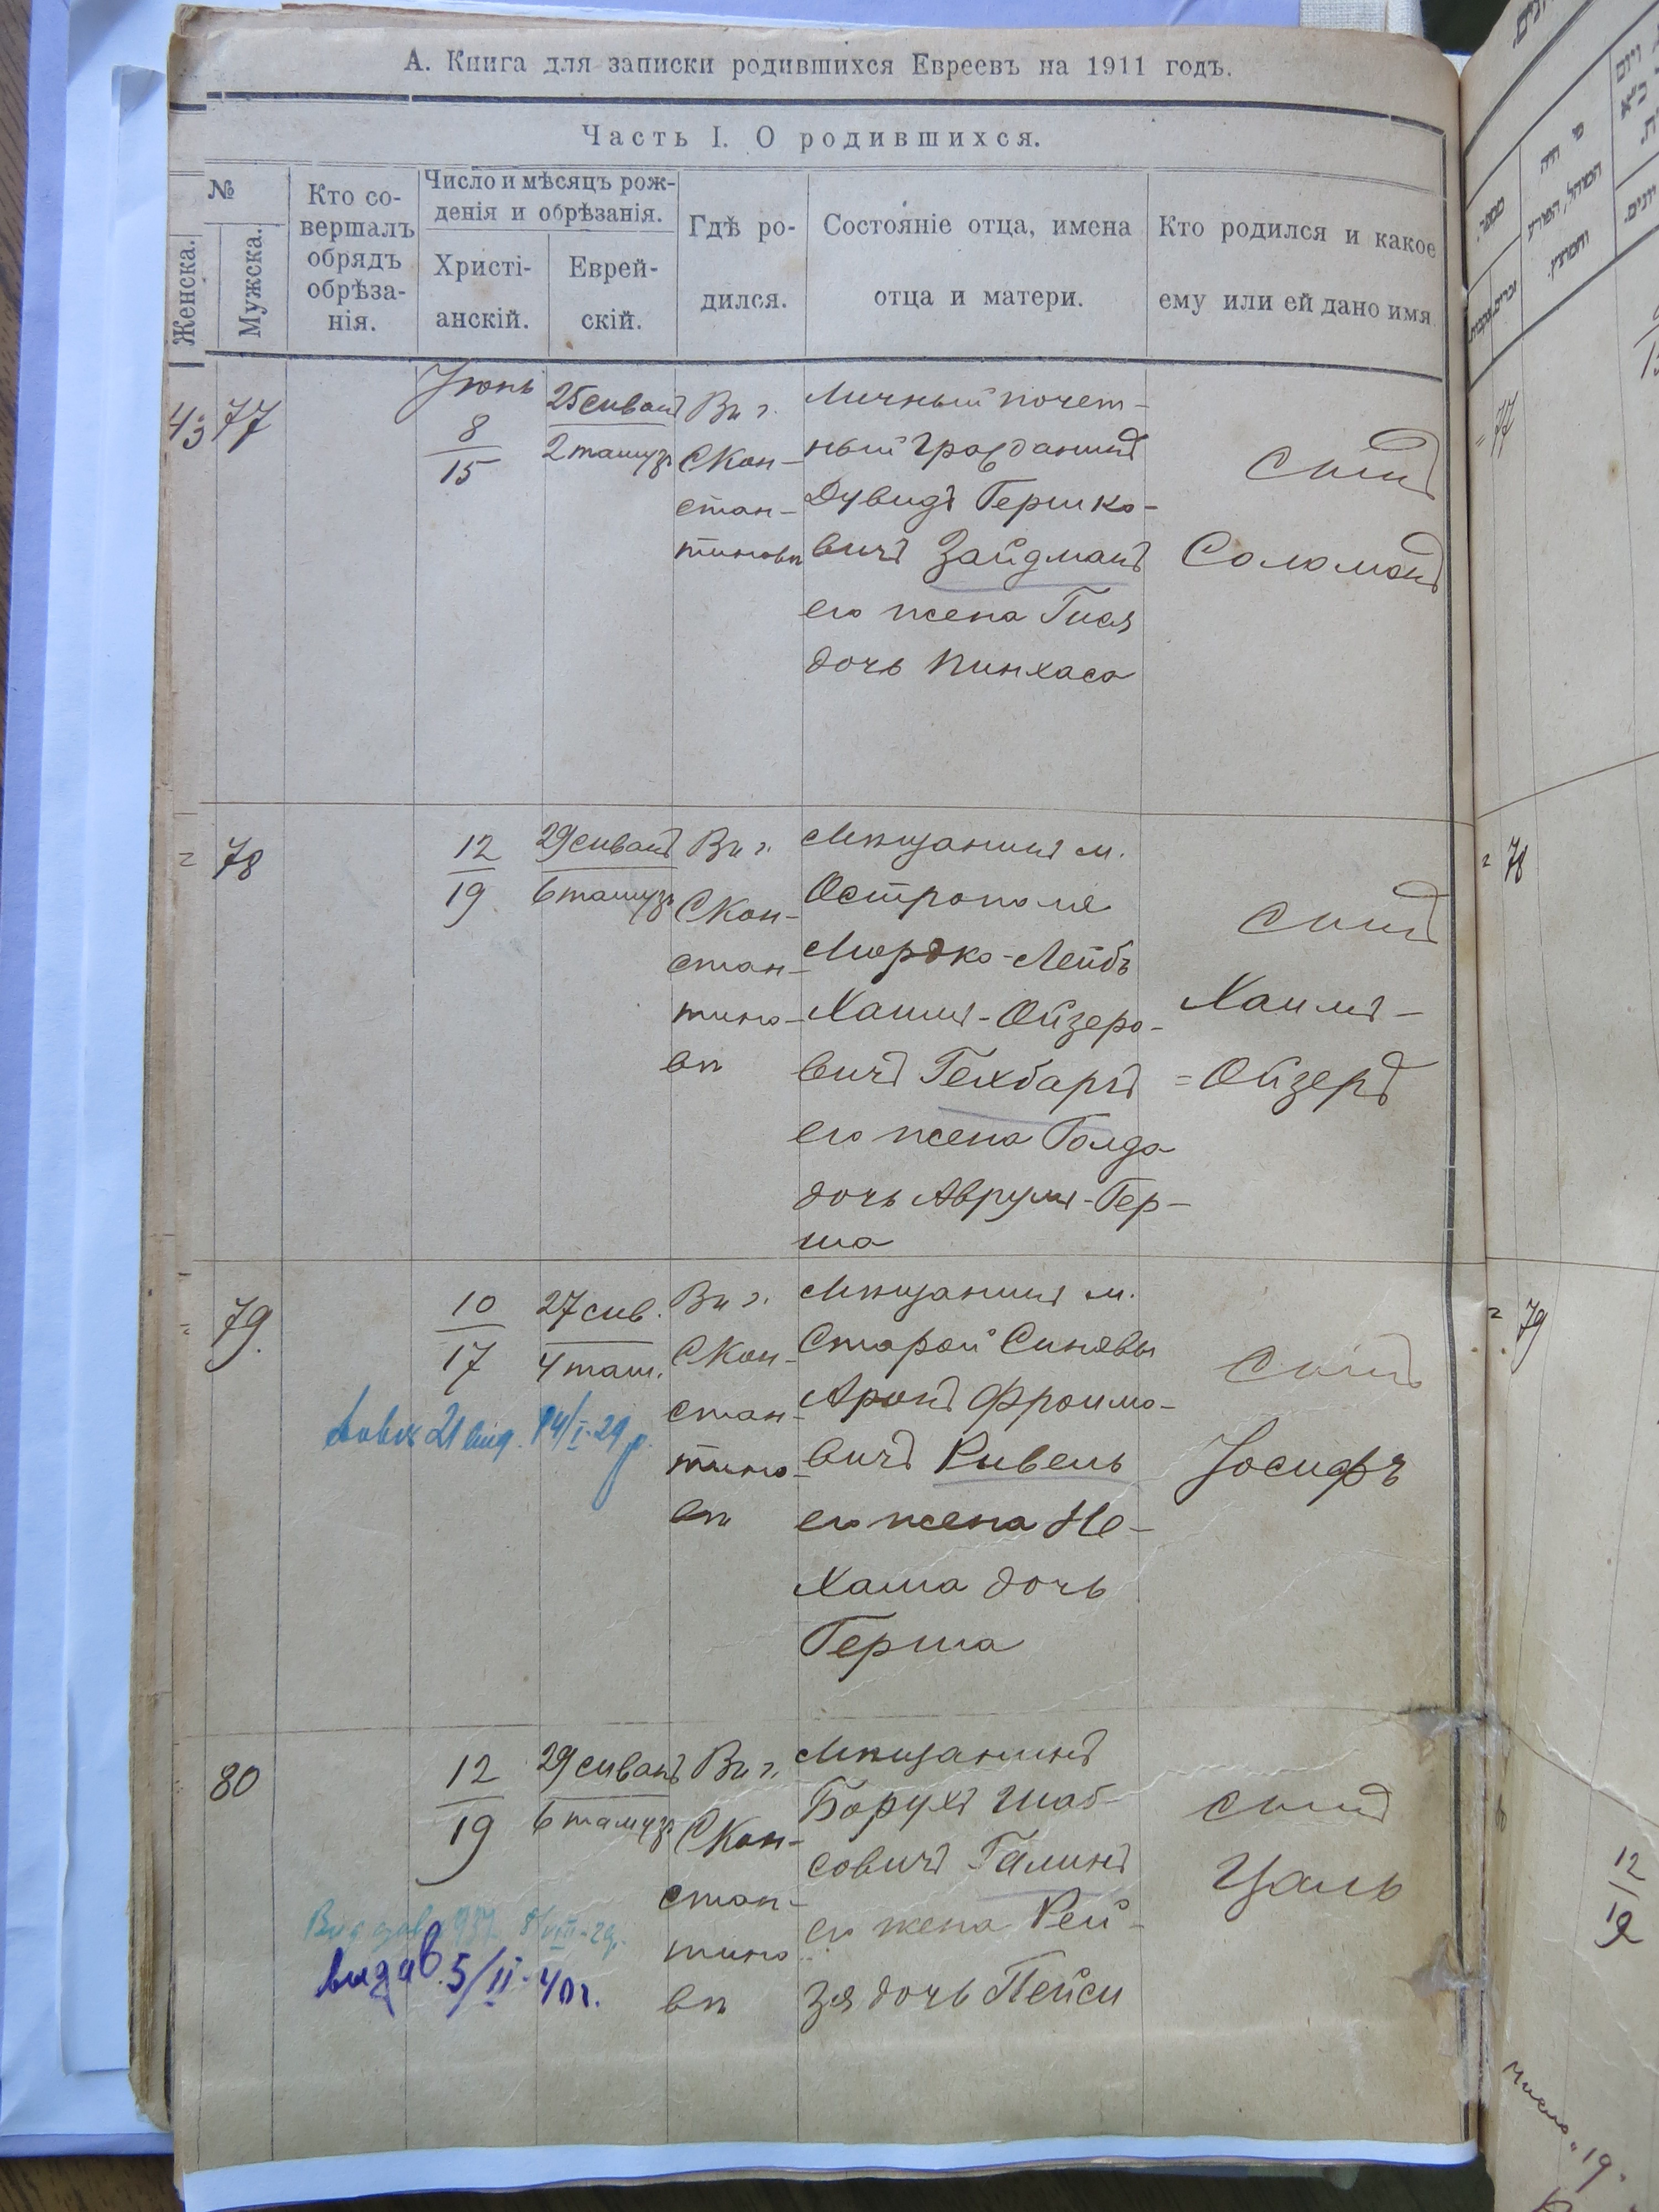 А. Книга для записки родившихся Евреевъ на 1911 годъ.
Часть I. О родившихся.
№
Женска.
Мужска.
Кто со-
вершалъ
обрядъ
обрѣза-
нія.
Число и мѣсяцъ рож-
денія и обрѣзанія.
Христі-
анскій.
Еврей-
скій.
Гдѣ ро-
дился.
Состояніе отца, имена
отца и матери.
Кто родился и какое
ему или ей дано имя
43
77
Іюнь
8
15
25 сиванъ
2 тамуз
Въ г.
СКон-
стан-
тиновѣ
Личный почет-
ный гражданинъ
Дувидъ Гершко-
вичъ Зайдманъ
его жена Гися
дочь Пинхаса
сынъ
Соломонъ
=
78
12
19
29 сиванъ
6 тамуз
Въ г.
СКон-
стан-
тино-
вѣ
Мѣщанинъ м.
Острополя
Мордко-Лейбъ
Хаимъ-Ойзеро-
вичъ Гехбаръ
его жена Голда
дочь Аврумъ-Гер-
ша
сынъ
Хаимъ-
=Ойзеръ
=
79.
10
17
27 сив.
4 там.
21
14/I-29 р.
Въ г.
СКон-
стан-
тино-
вѣ
Мѣщанинъ м.
Старой Синявы
Аронъ Фроимо-
вичъ Ривель
его жена Не-
хама дочь
Герша
сынъ
Іосифъ
80
12
19
29 сиванъ
6 тамуз
видав. 5/II-40 г.
Въ г.
СКон-
стан-
тино
вѣ
Мѣщанинъ
Борухъ Шаб-
совичъ Галинъ
его жена Рей-
зя дочь Пейси
сынъ
Цаль
= 77
= 78
= 79
12
19